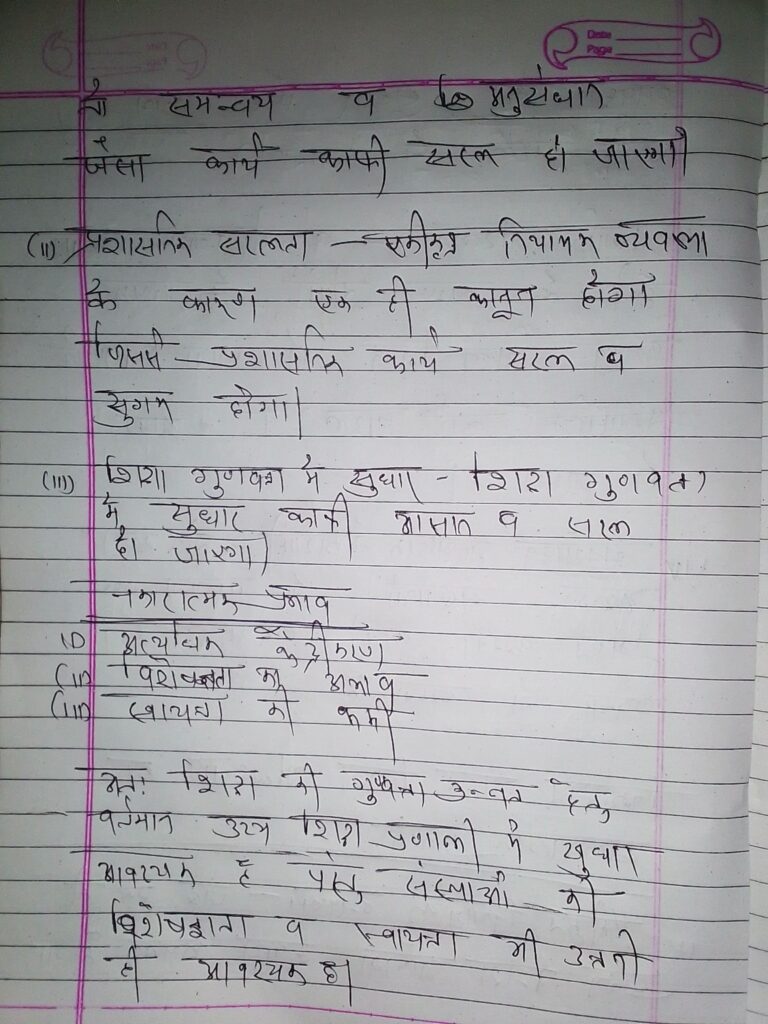 Date
Page
तो समन्वय व अनुसंधान
जैसा कार्य काफी सरल हो जाएगा
(ii) प्रशासनिक सरलता - एकीकृत नियामक व्यवस्था
के कारण एक ही कानून होगा
जिससे प्रशासनिक कार्य सरल व
सुगम होगा।
(iii) शिक्षा गुणवत्ता में सुधार - शिक्षा गुणवत्ता
में सुधार काफी आसान व सरल
हो जाएगा।
नकारात्मक प्रभाव
(i) अत्यधिक केंद्रीकरण
(ii) विशेषज्ञता का अभाव
(iii) स्वायत्ता की कमी
अतः शिक्षा की गुणवत्ता उन्नत हेतु
वर्तमान उच्च शिक्षा प्रणाली में सुधार
आवश्यक है परंतु संस्थाओं की
विशेषज्ञता व स्वायत्ता भी उतनी
ही आवश्यक है।